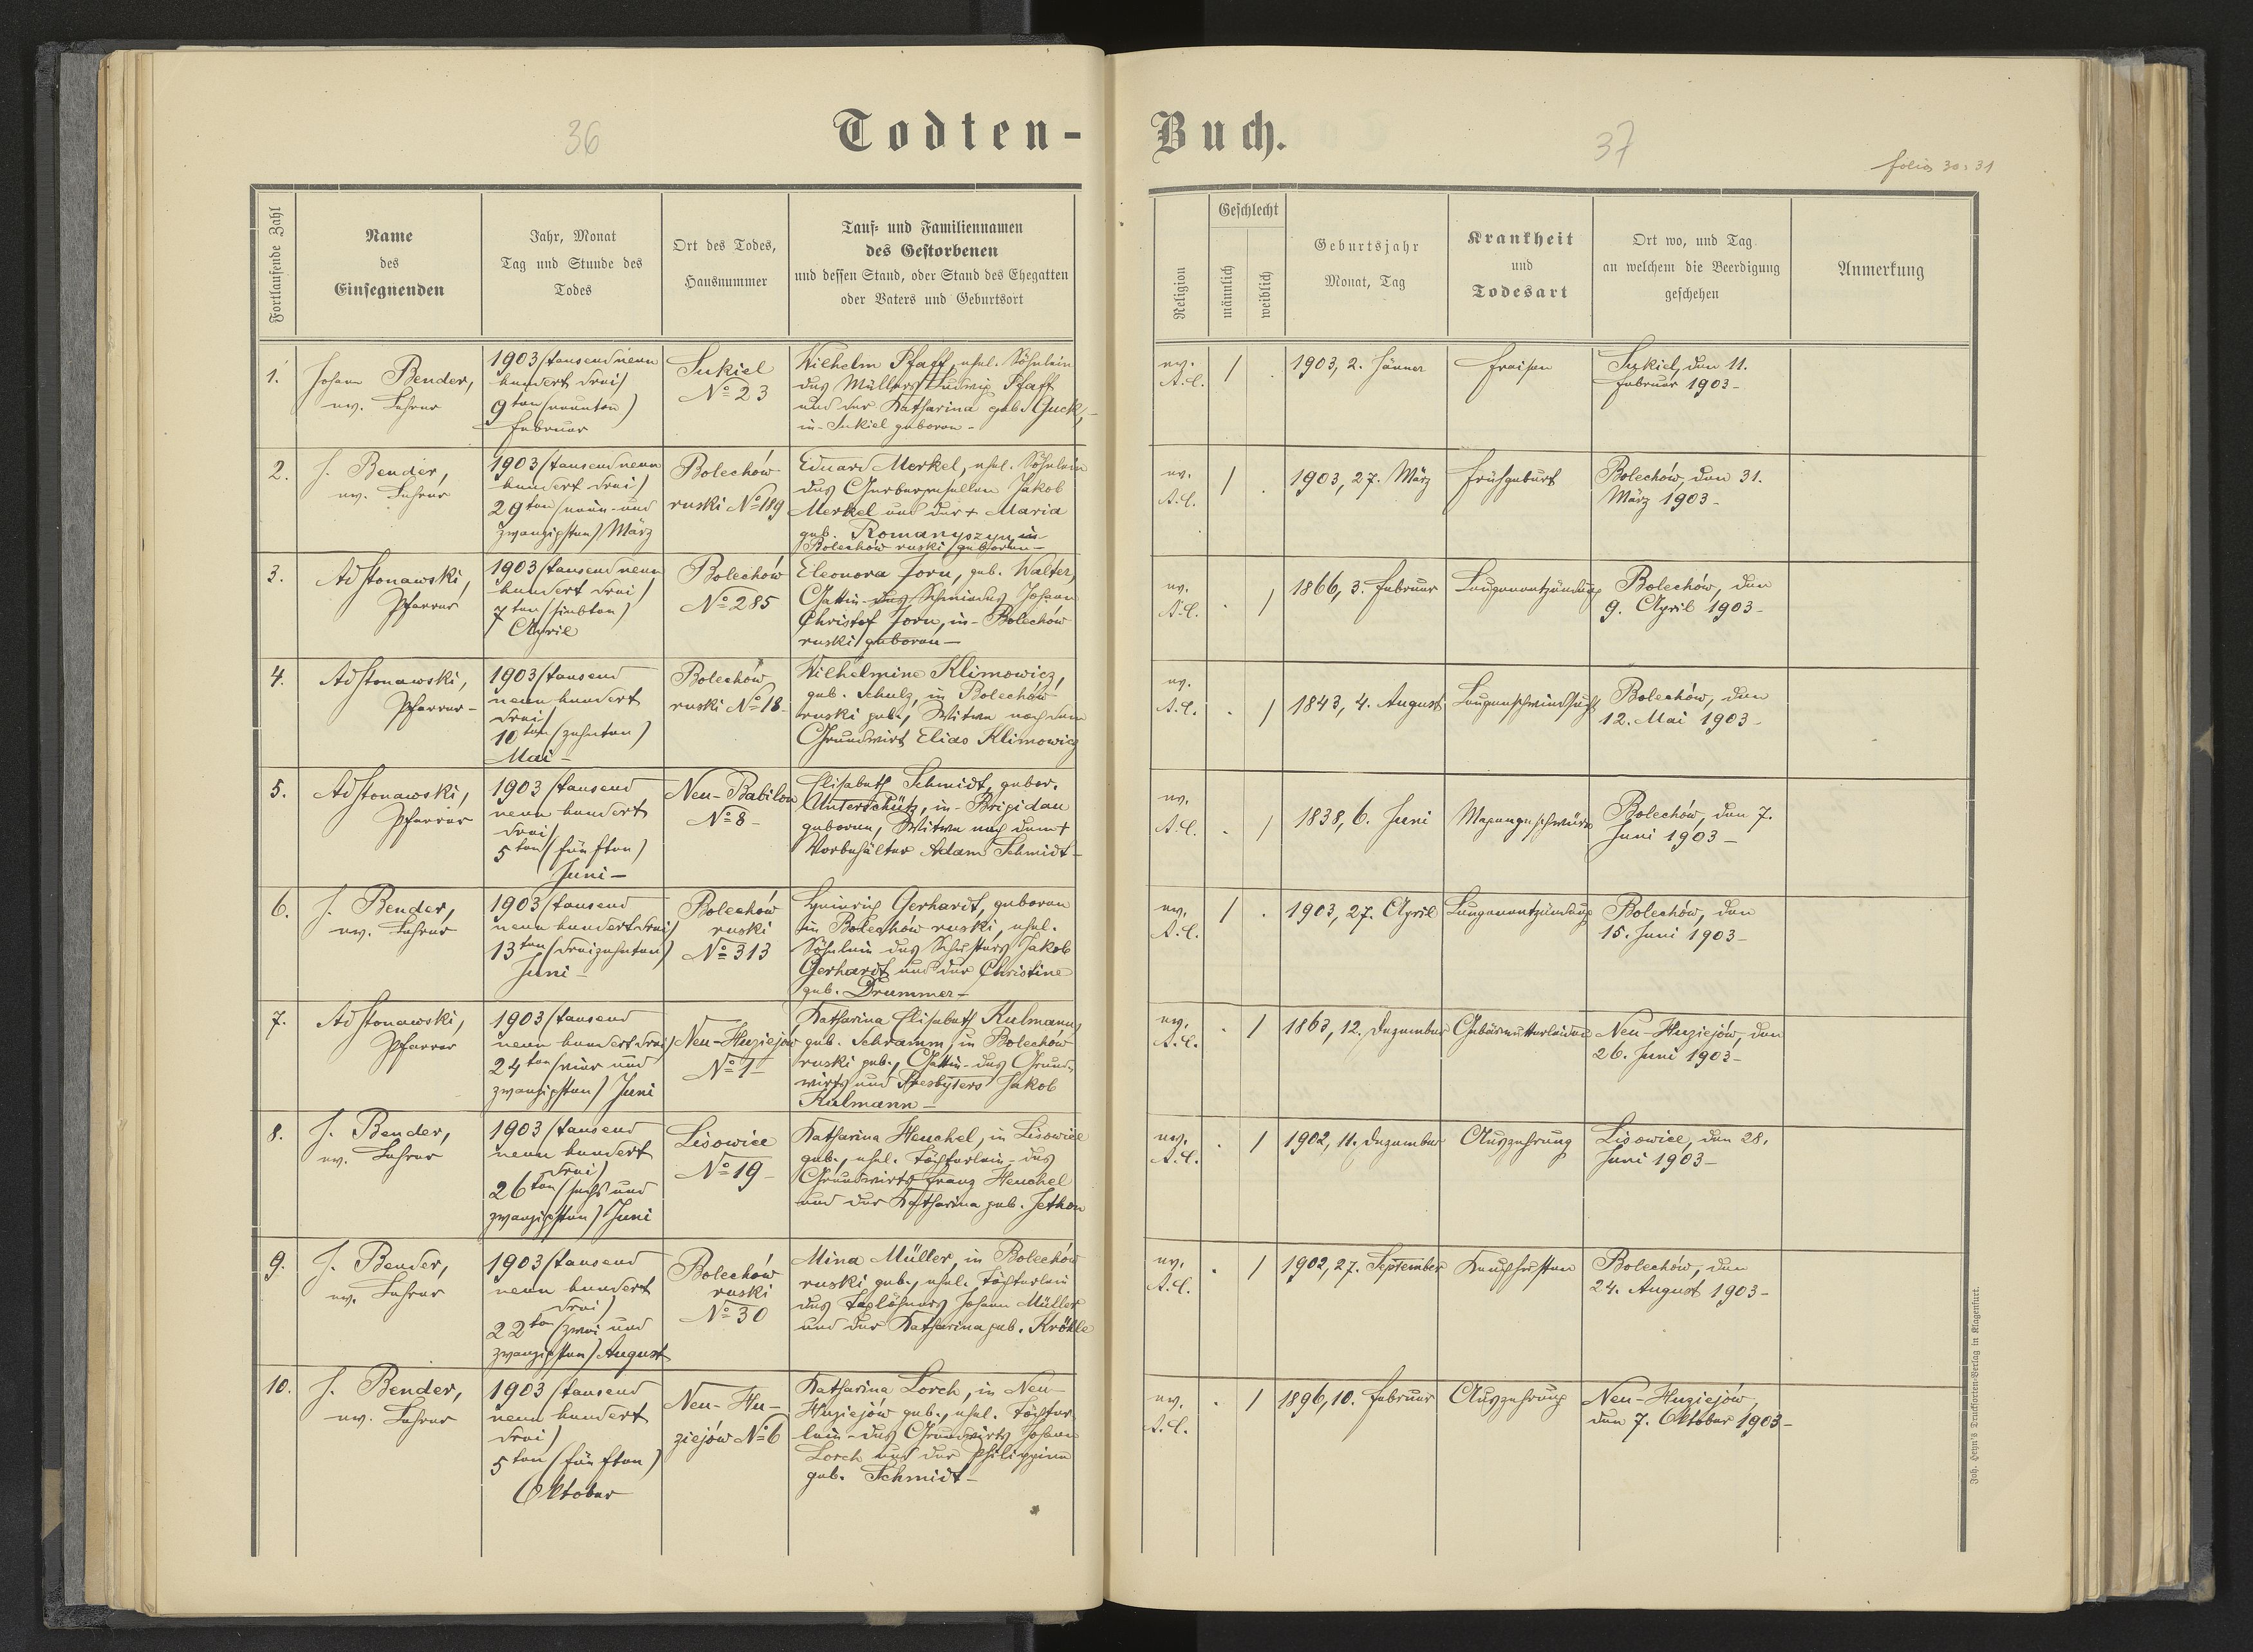 36
Todten-
Fortlaufende Zahl
Name
des
Einsegnenden
Jahr, Monat
Tag und Stunde des
Todes
Ort des Todes,
Hausnummer
Tauf- und Familiennamen
des Gestorbenen
und dessen Stand, oder Stand des Ehegatten
oder Vaters und Geburtsort
1.
Johann Bender,
ev. Lehrer
1903 (tausend neun
hundert drei)
9ten (neunten)
Februar
Sukiel
No 23
Wilhelm Pfaff, ehel. Söhnlein
des Müllers Ludwig Pfaff
und der Katharina geb. Guck,
in Sukiel geboren -
2.
J. Bender,
ev. Lehrer
1903 (tausend neun
hundert drei)
29ten (neun- und
zwanzigsten) März
Bolechów
ruski No 189
Eduard Merkel, ehel. Söhnlein
des Gerbergesellen Jakob
Merkel und der + Maria
geb. Romanyszyn, in
Bolechów ruski geboren -
3.
Ad Stonawski,
Pfarrer
1903 (tausend neun
hundert drei)
7ten (siebten)
April
Bolechów
No 285
Eleonora Jorn, geb. Walter,
Gattin des Schmiedes Johann
Christof Jorn, in Bolechów
ruski geboren -
4.
Ad Stonawski,
Pfarrer -
1903 (tausend
neun hundert
drei)
10ten (zehnten)
Mai -
Bolechów
ruski No 18 -
Wilhelmine Klimowicz,
geb. Schulz, in Bolechów
ruski geb., Witwe nach dem
Grundwirt Elias Klimowicz
5.
Ad Stonawski,
Pfarrer
1903 (tausend
neun hundert
drei)
5ten (fünften)
Juni -
Neu-Babilon
No 8 -
Elisabeth Schmidt, gebor.
Unterschütz, in Brigidau
geboren, Witwe nach dem +
Vorbehälter Adam Schmidt -
6.
J. Bender,
ev. Lehrer
1903 (tausend
neun hundert drei)
13ten (dreizehnten)
Juni -
Bolechów
ruski
No 313
Heinrich Gerhardt, geboren
in Bolechów ruski, ehel.
Söhnlein des Schusters Jakob
Gerhardt und der Christine
geb. Drummer -
7.
Ad Stonawski,
Pfarrer
1903 (tausend
neun hundert drei)
24ten (vier und
zwanzigsten) Juni
Neu-Huziejów
No 1 -
Katharina Elisabeth Kulmann,
geb. Schramm, in Bolechów
ruski geb., Gattin des Grund-
wirts und Presbyters Jakob
Kulmann -
8.
J. Bender,
ev. Lehrer
1903 (tausend
neun hundert
drei)
26ten (sechs und
zwanzigsten) Juni
Lisowice
No 19 -
Katharina Heuchel, in Lisowice
geb., ehel. Töchterlein des
Grundwirts Franz Heuchel
und der Katharina geb. Jethon
9.
J. Bender,
ev. Lehrer
1903 (tausend
neun hundert
drei)
22ten (zwei und
zwanzigsten) August
Bolechów
ruski
No 30
Mina Müller, in Bolechów
ruski geb., ehel. Töchterlein
des Taglöhners Johann Müller
und der Katharina geb. Kröhle
10.
J. Bender,
ev. Lehrer
1903 (tausend
neun hundert
drei)
5ten (fünften)
Oktober
Neu-Hu-
ziejów No 6
Katharina Lorch, in Neu-
Huziejów geb., ehel. Töchter-
lein des Grundwirts Johann
Lorch und der Philippine
geb. Schmidt -
Buch.
37
folio 30, 31
Religion
Geschlecht
männlich
weiblich
Geburtsjahr
Monat, Tag
Krankheit
und
Todesart
Ort wo, und Tag
an welchem die Beerdigung
geschehen
Anmerkung
ev.
A.C.
/
.
1903, 2. Jänner
Fraisen
Sukiel, den 11.
Februar 1903 -
ev.
A.C.
/
.
1903, 27. März
Frühgeburt
Bolechów, den 31.
März 1903 -
ev.
A.C.
.
/
1866, 3. Februar
Lungenentzündung
Bolechów, den
9. April 1903 -
ev.
A.C.
.
/
1843, 4. August
Lungenschwindsucht
Bolechów, den
12. Mai 1903 -
ev.
A.C.
.
/
1838, 6. Juni
Magengeschwür
Bolechów, den 7.
Juni 1903 -
ev.
A.C.
/
.
1903, 27. April
Lungenentzündung
Bolechów, den
15. Juni 1903 -
ev.
A.C.
.
/
1863, 12. Dezember
Gebärmutterleiden
Neu-Huziejów, den
26. Juni 1903 -
ev.
A.C.
.
/
1902, 11. Dezember
Auszehrung
Lisowice, den 28.
Juni 1903 -
ev.
A.C.
.
/
1902, 27. September
Keuchhusten
Bolechów, den
24. August 1903 -
ev.
A.C.
.
/
1896, 10. Februar
Auszehrung
Neu-Huziejów,
den 7. Oktober 1903 -
Joh. Heyn's Drucksorten-Verlag in Klagenfurt.